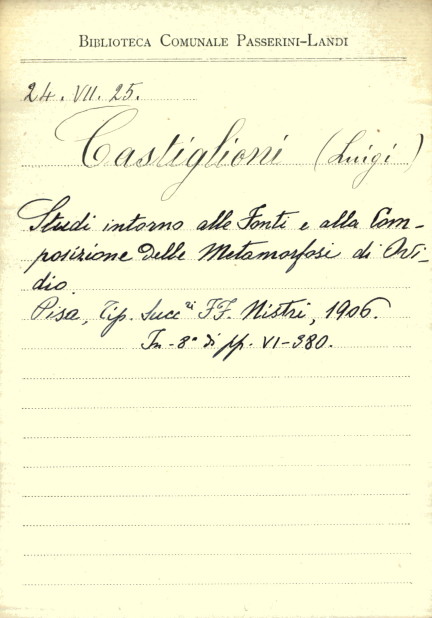 BIBLIOTECA COMUNALE PASSERINI-LANDI
24. VII. 25.
Castiglioni (Luigi)
Studi intorno alle Fonti e alla Com-
posizione delle Metamorfosi di Ovi-
dio.
Pisa, Tip. Succ.ri FF. Nistri, 1906.
In-8° di pp. VI-380.